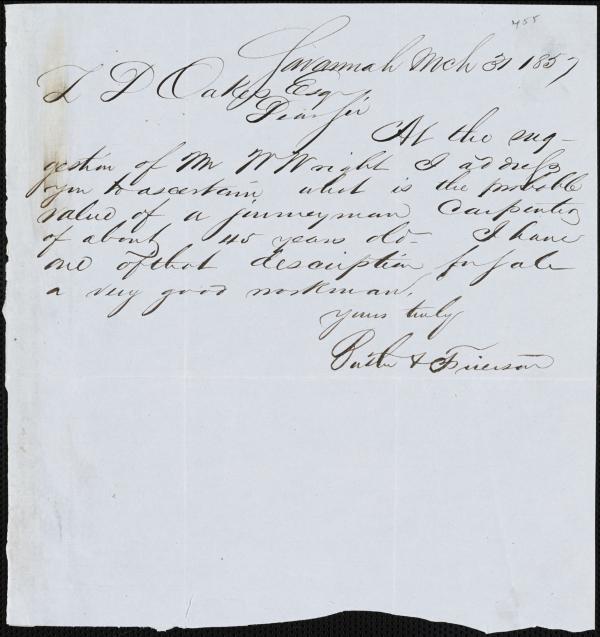 455
Savannah Mch 31 1857
Z D Oakes Esq
Dear Sir
At the sug-
gestion of Mr W Wright I address
you to ascertain what is the probable
value of a journeyman Carpenter
of about 45 years old - I have
one of that description for sale
a very good workman.
yours truly
& Frierson